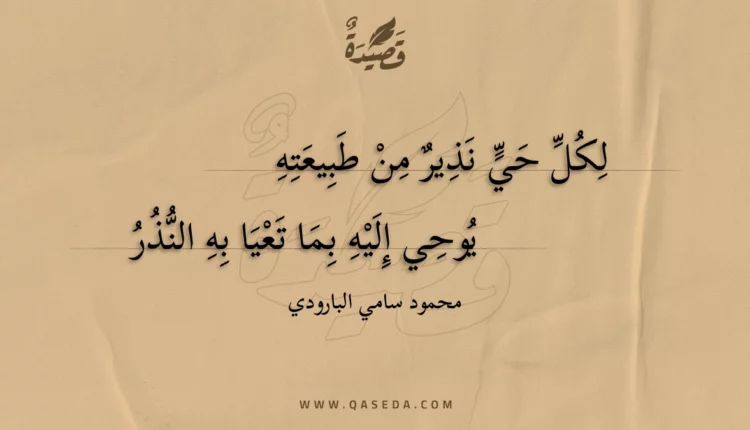 قَصِيدَةٌ
لِكُلِّ حَيٍّ نَذِيرٌ مِنْ طَبِيعَتِهِ
يُوحِي إِلَيْهِ بِمَا تَعْيَا بِهِ النُّذُرُ
محمود سامي البارودي
WWW.QASEDA.COM